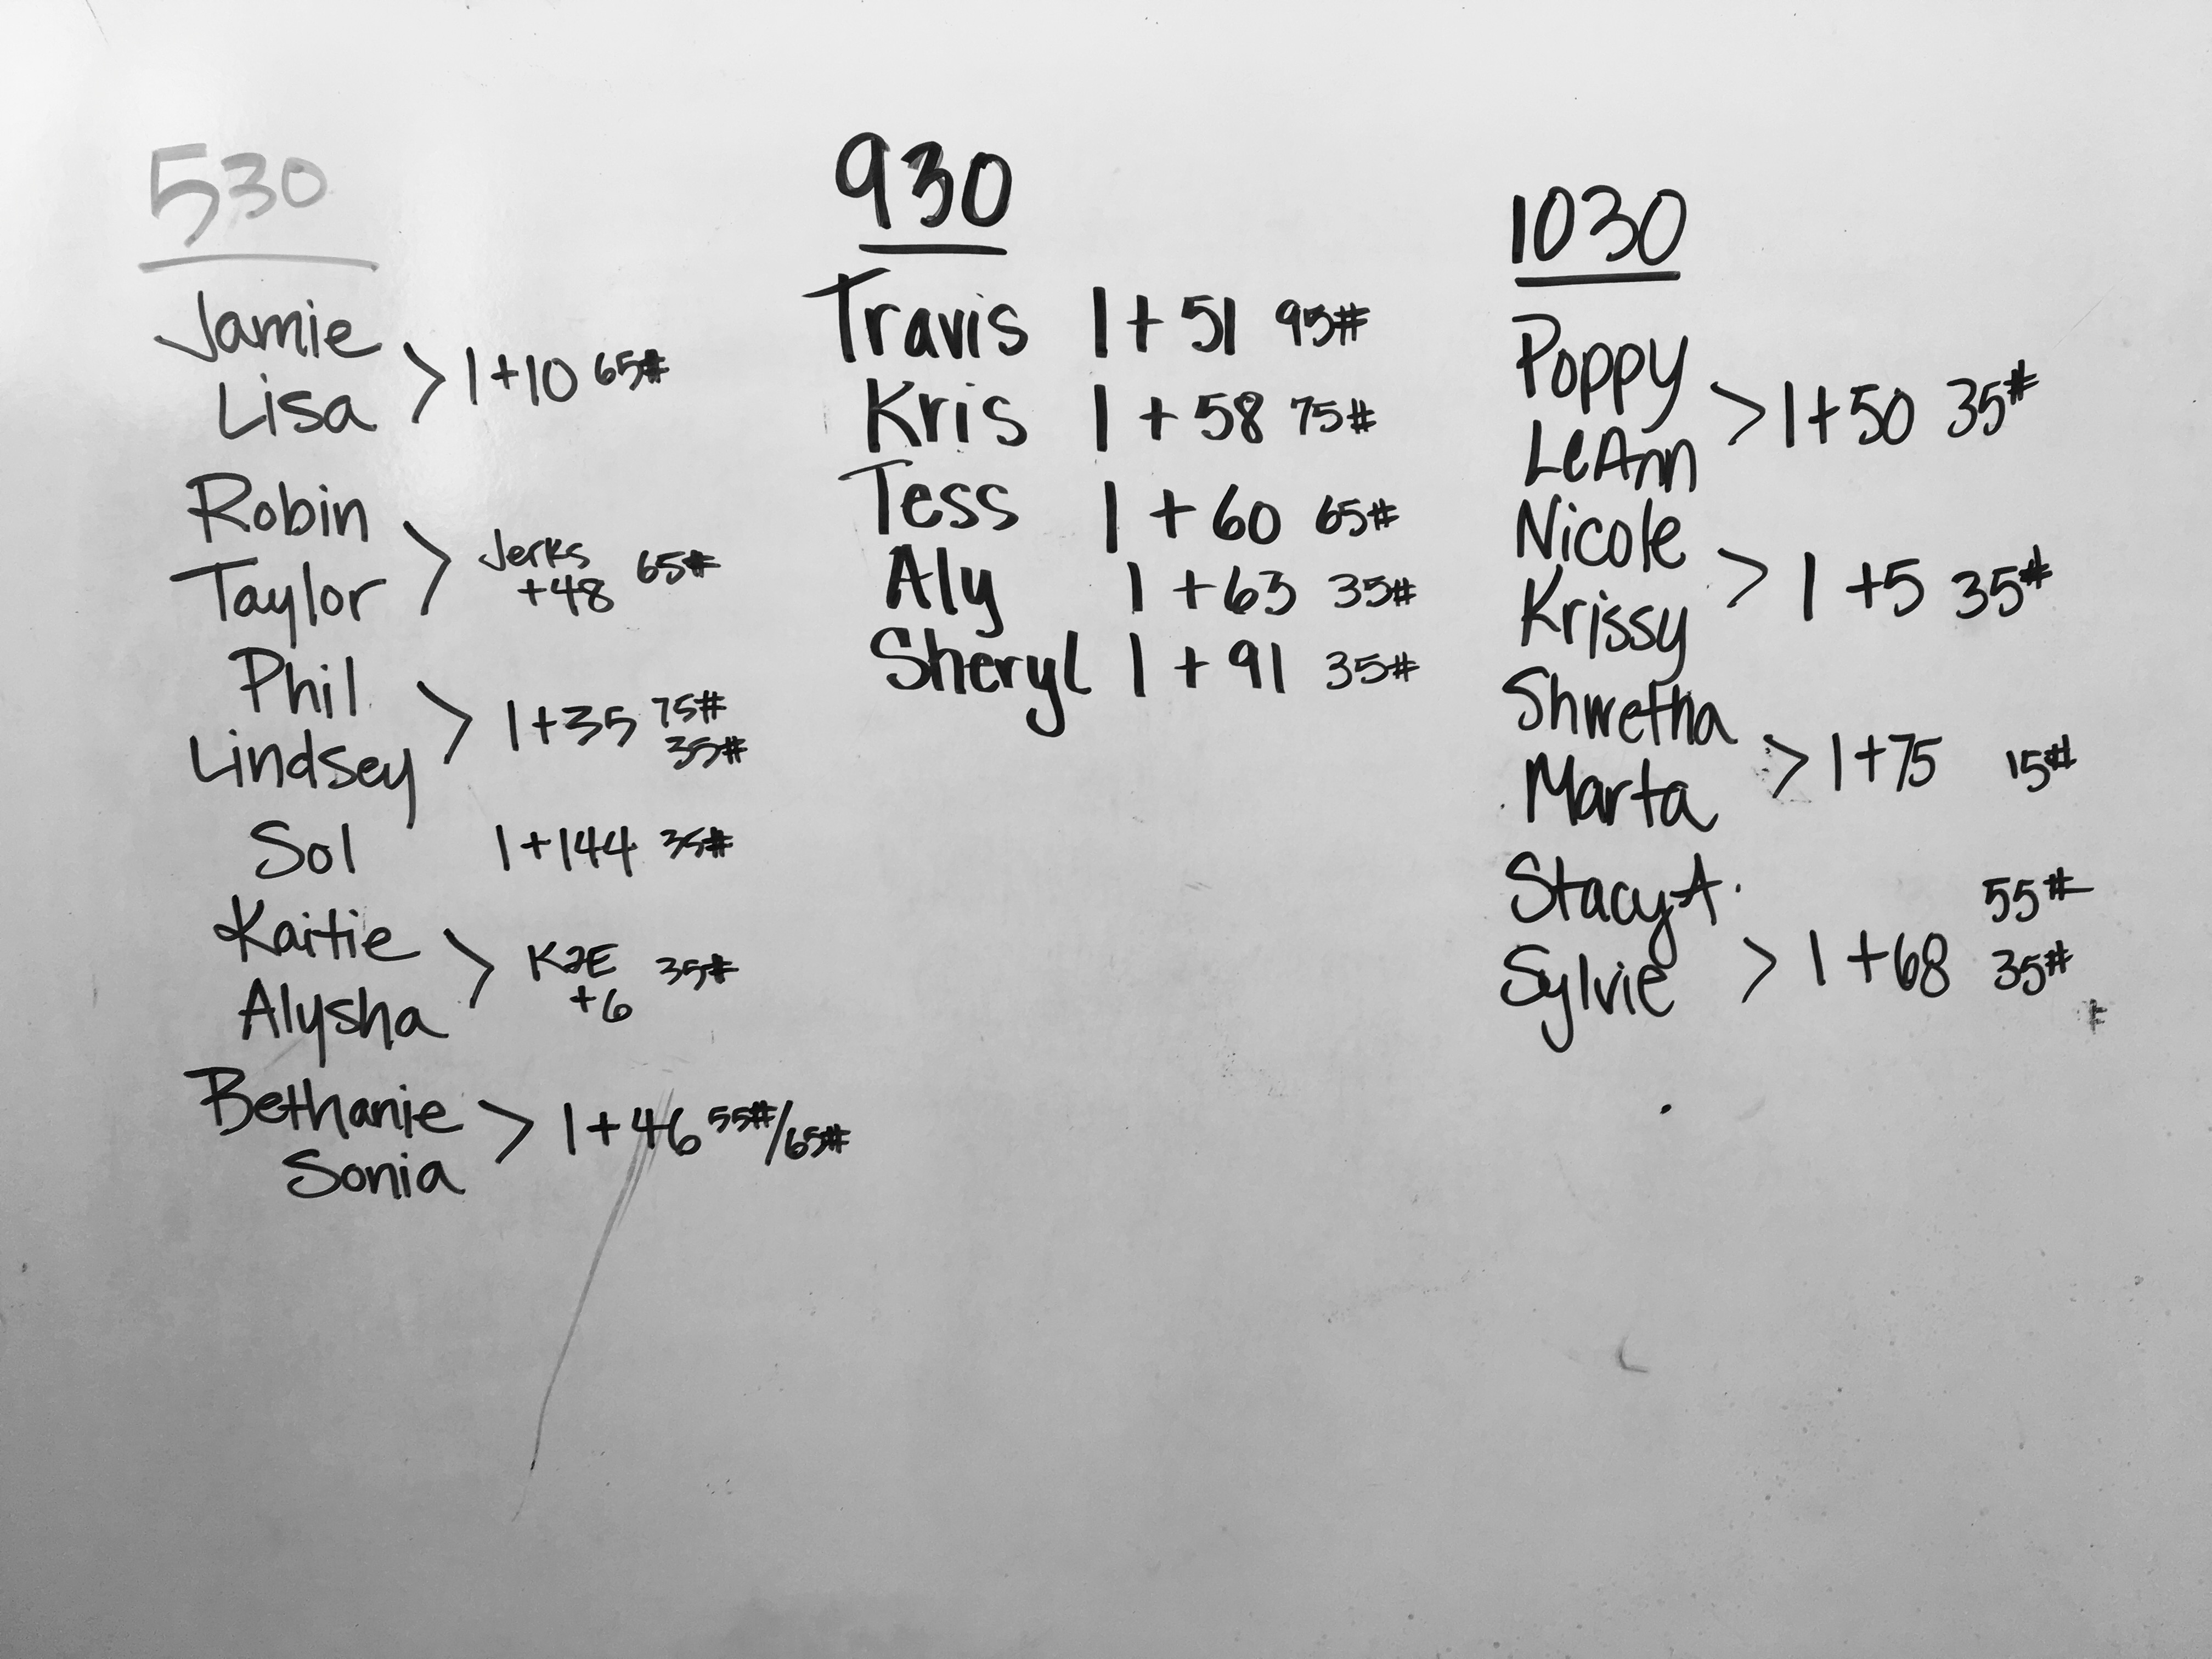 530
Jamie
Lisa > 1+10 65#
Robin
Taylor > Jerks +48 65#
Phil
Lindsey > 1+35 75# 35#
Sol 1+144 35#
Kaitie
Alysha > K2E +6 35#
Bethanie
Sonia > 1+46 55#/65#
930
Travis 1+51 95#
Kris 1+58 75#
Tess 1+60 65#
Aly 1+63 35#
Sheryl 1+91 35#
1030
Poppy
LeAnn > 1+50 35#
Nicole
Krissy > 1+5 35#
Shwetha
Marta > 1+75 15#
Stacy A. 55#
Sylvie > 1+68 35#